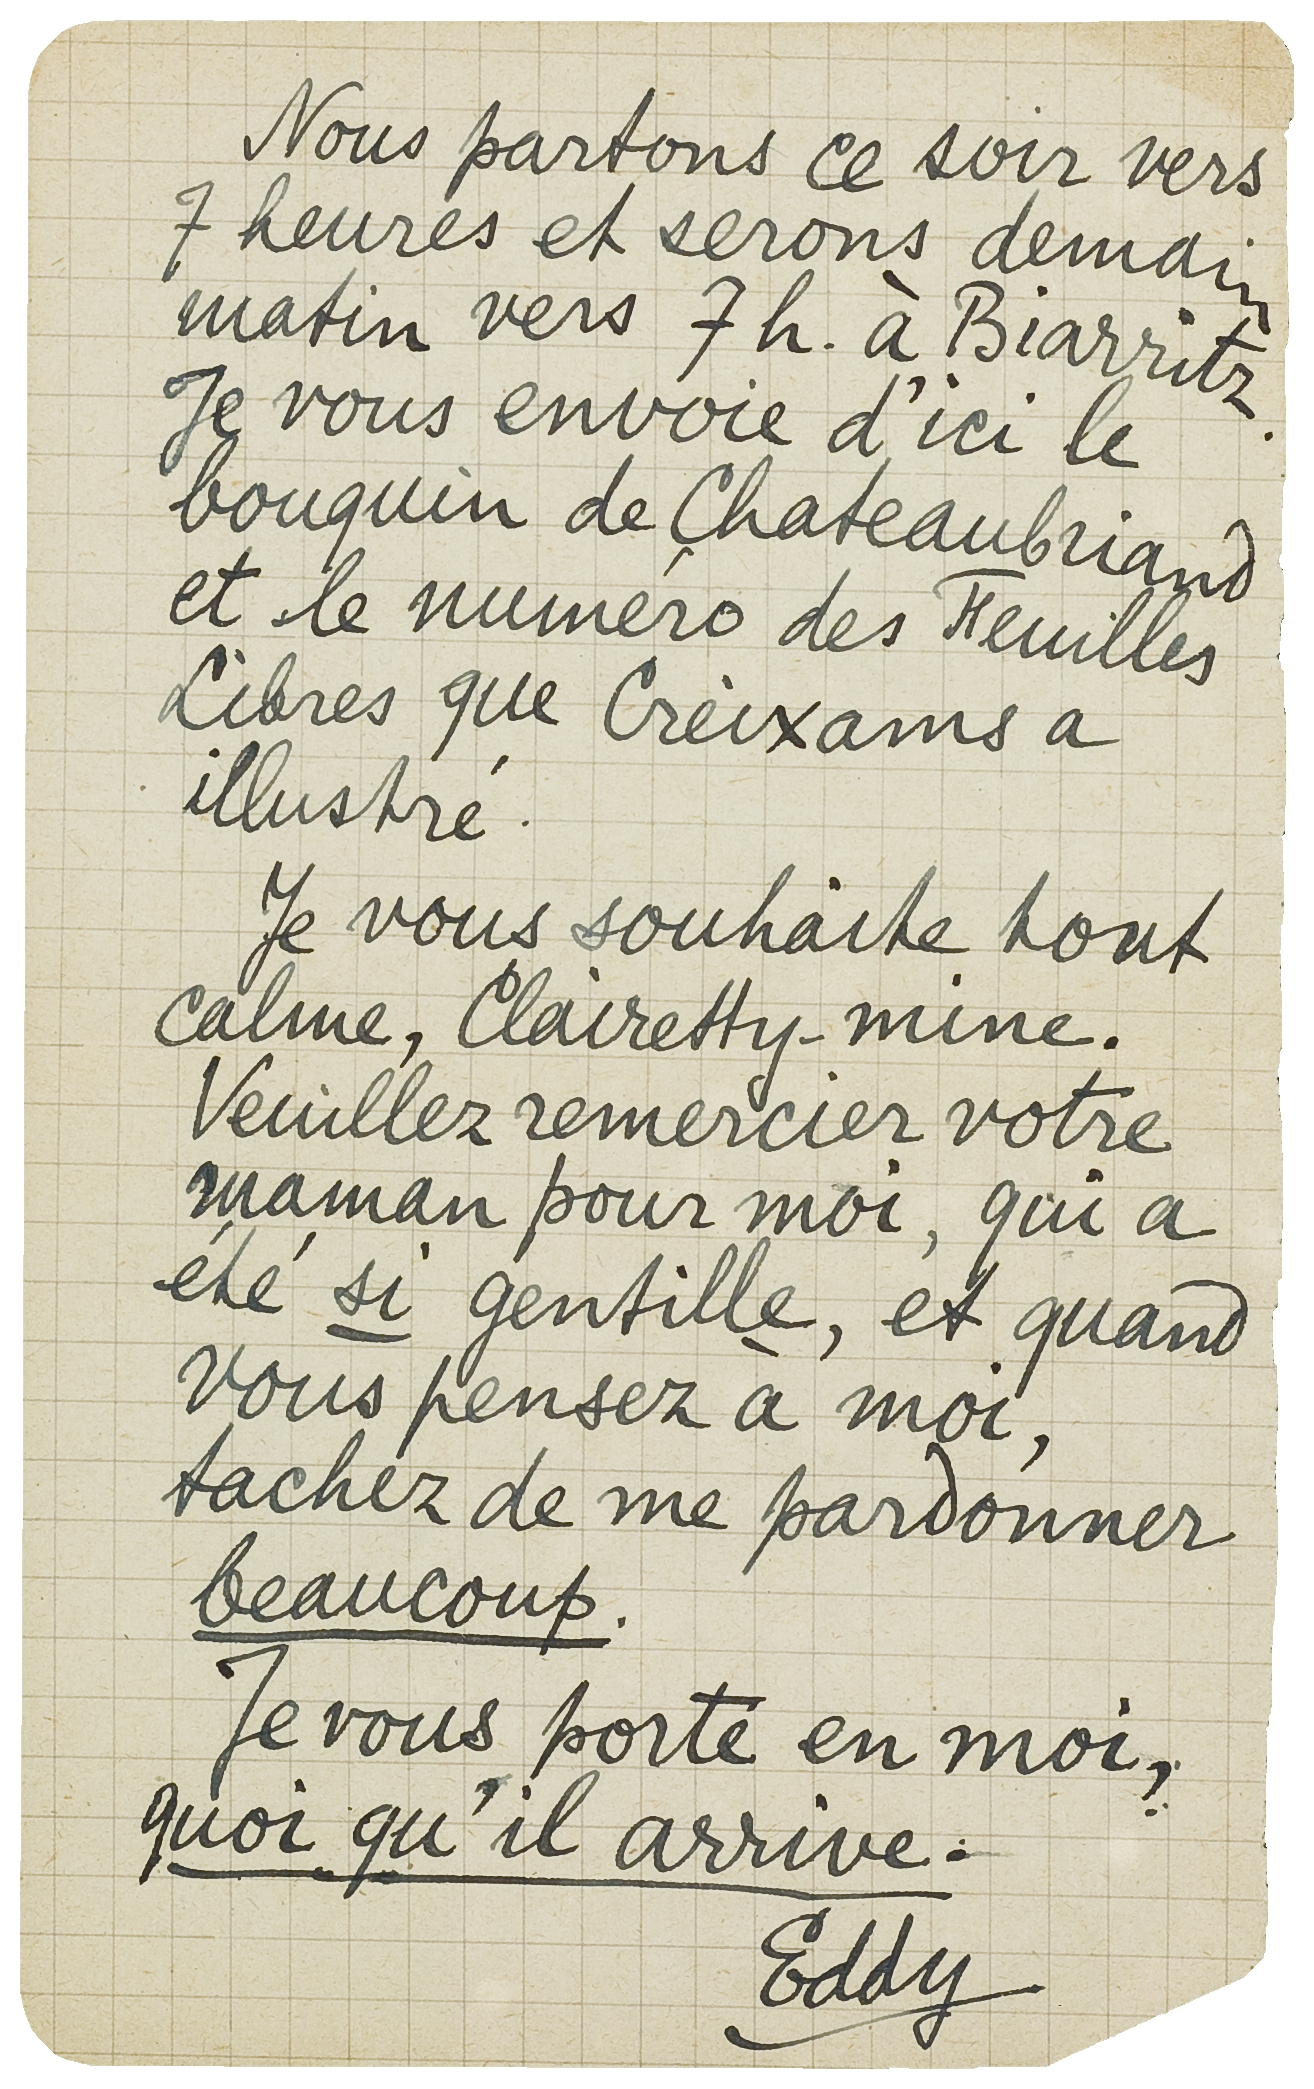 Nous partons ce soir vers
7 heures et serons demain
matin vers 7 h. à Biarritz.
Je vous envoie d'ici le
bouquin de Chateaubriand
et le numéro des Feuilles
Libres que Créixams a
illustré.
Je vous souhaite tout
calme, Clairetty-mine.
Veuillez remercier votre
maman pour moi, qui a
été si gentille, et quand
vous pensez à moi,
tachez de me pardonner
beaucoup.
Je vous porte en moi,
quoi qu'il arrive.
Eddy